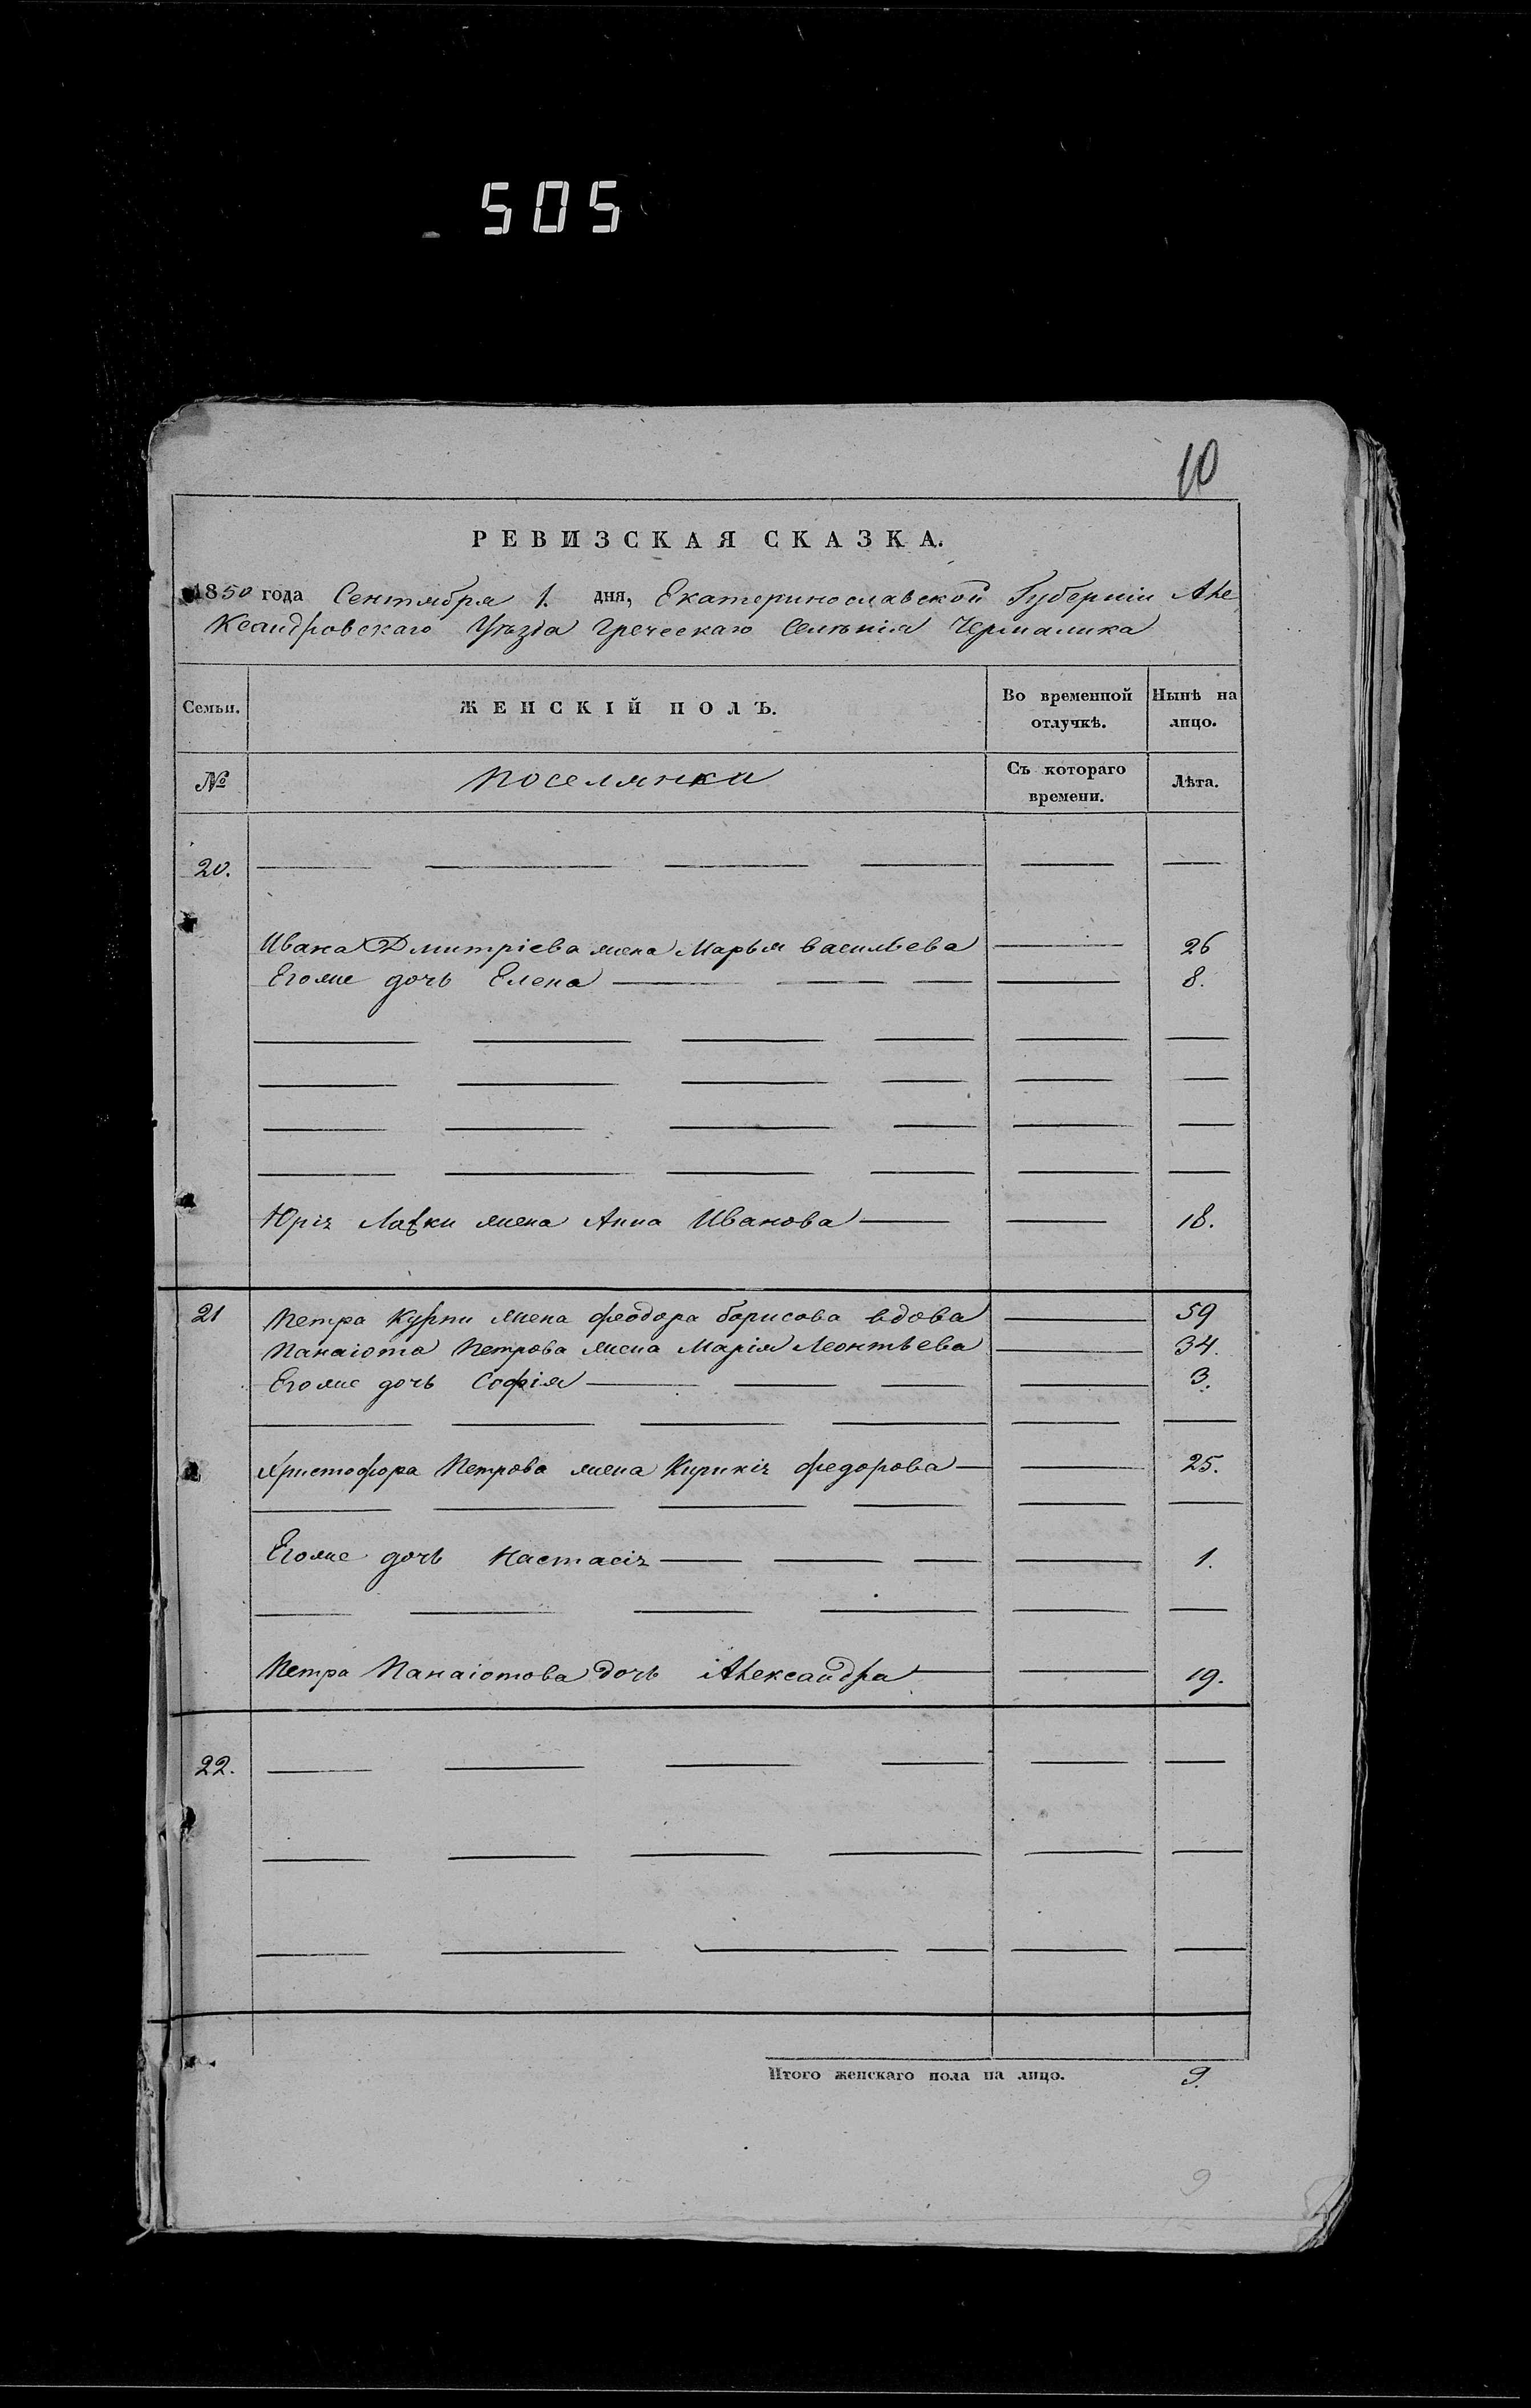 505
10
РЕВИЗСКАЯ СКАЗКА.
1850 года Сентября 1. дня, Екатеринославской Губерніи Але
ксандровскаго Уѣзда Греческаго Селѣнія Чермалика
Семьи. ЖЕНСКІЙ ПОЛЪ. Во временной отлучкѣ. Нынѣ на лицо.
№ Поселянки Съ котораго времени. Лѣта.
20.
Ивана Дмитріева жена Марья Васильева 26
Егоже дочь Елена 8.
Лавки жена Анна Иванова 18.
21 Петра Курпи жена Феодора Борисова вдова 59
Панаіота Петрова жена Марія Леонтьева 34.
Егоже дочь Софія 3.
Христофора Петрова жена Федорова 25.
Егоже дочь Настасія 1.
Петра Панаіотова дочь Александра 19.
22.
Итого женскаго пола на лицо. 9.
9